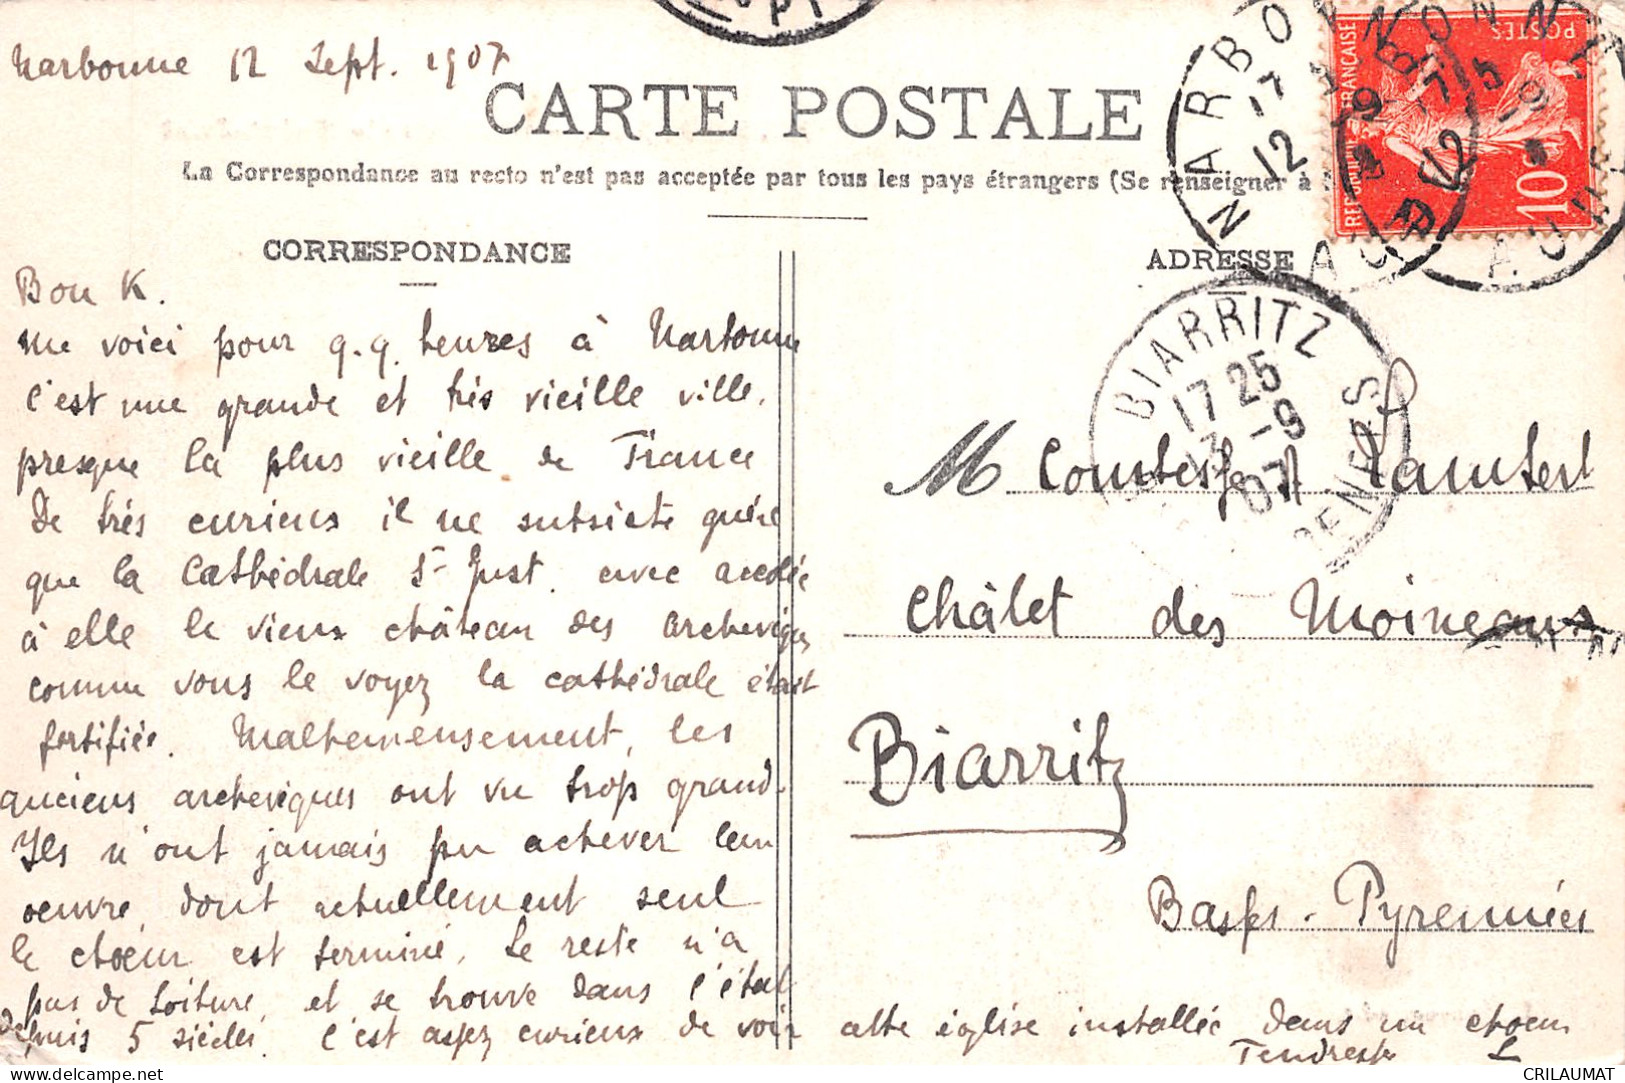 Narbonne 12 Sept. 1907
CARTE POSTALE
La Correspondance au recto n'est pas acceptée par tous les pays étrangers (Se renseigner à
CORRESPONDANCE
Bon K.
me voici pour q.q. heures à Narbonne
c'est une grande et très vieille ville.
presque la plus vieille de France
De très curieux il ne subsiste guère
que la Cathédrale St Just. avec accolée
à elle le vieux château des archevêques
comme vous le voyez la cathédrale était
fortifiée. Malheureusement, les
anciens archevêques ont vu trop grand.
Ils n'ont jamais pu achever leur
oeuvre dont actuellement seul
le choeur est terminé. Le reste n'a
pas de toiture, et se trouve dans l'état
depuis 5 siècles. C'est assez curieux de voir cette église installée dans un choeur
Tendresses L
ADRESSE
M Comtesse A Lambert
Châlet des Moineaux
Biarritz
Basses-Pyrennées
NARBONNE
17
12
AUDE
NARBONNE
17 15
12 -9
AUDE
REPUBLIQUE FRANÇAISE
POSTES
10c
BIARRITZ
17 25
13 -9
07
PYRENEES
CRILAUMAT